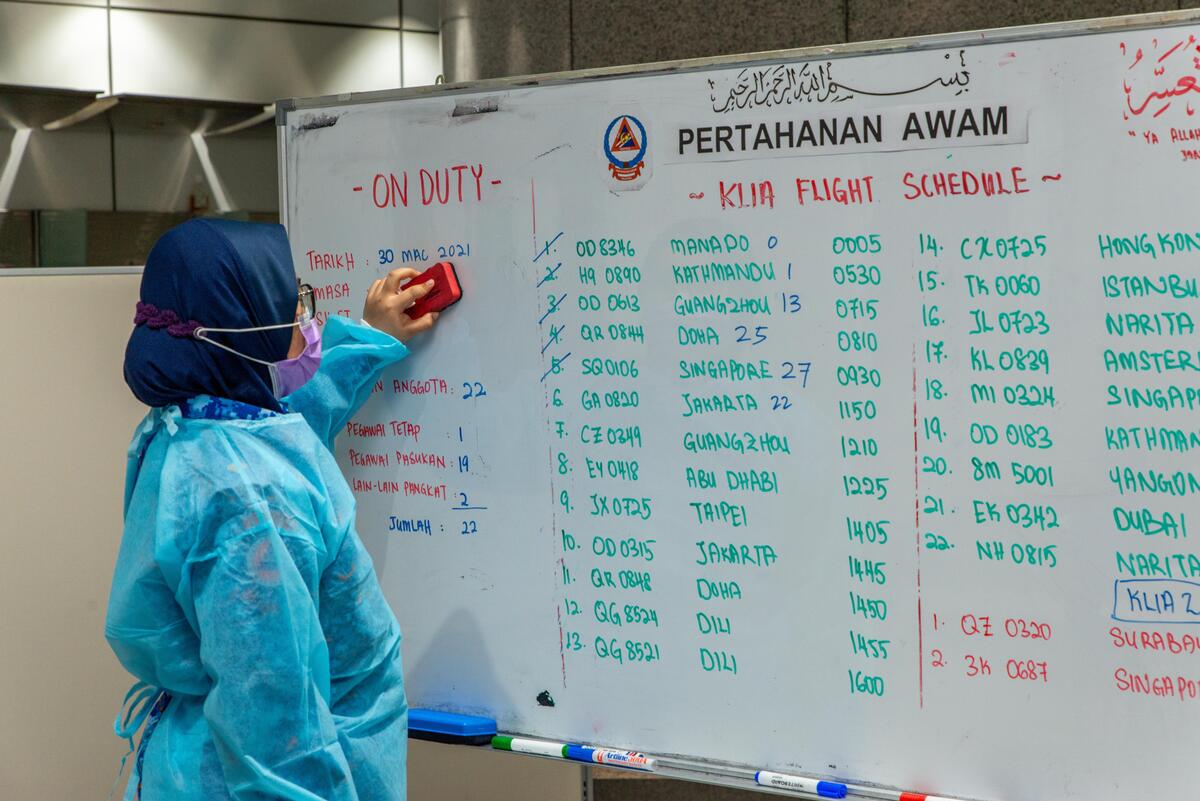 بسم الله الرحمن الرحيم
PERTAHANAN AWAM
" YA ALLAH
- ON DUTY -
TARIKH : 30 MAC 2021
MASA
ANGGOTA : 22
PEGAWAI TETAP : 1
PEGAWAI PASUKAN : 19
LAIN-LAIN PANGKAT : 2
JUMLAH : 22
~ KLIA FLIGHT SCHEDULE ~
1. OD 8346 MANADO 0 0005
2. H9 0890 KATHMANDU 1 0530
3. OD 0613 GUANGZHOU 13 0715
4. QR 0844 DOHA 25 0810
5. SQ 0106 SINGAPORE 27 0930
6. GA 0820 JAKARTA 22 1150
7. CZ 0349 GUANGZHOU 1210
8. EY 0418 ABU DHABI 1225
9. JX 0725 TAIPEI 1405
10. OD 0315 JAKARTA 1445
11. QR 0848 DOHA 1450
12. QG 8524 DILI 1455
13. QG 8521 DILI 1600
14. CX 0725 HONG KON
15. TK 0060 ISTANBU
16. JL 0723 NARITA
17. KL 0839 AMSTER
18. MI 0324 SINGAP
19. OD 0183 KATHMAN
20. 8M 5001 YANGON
21. EK 0342 DUBAI
22. NH 0815 NARITA
KLIA 2
1. QZ 0320 SURABAY
2. 3K 0687 SINGAPO